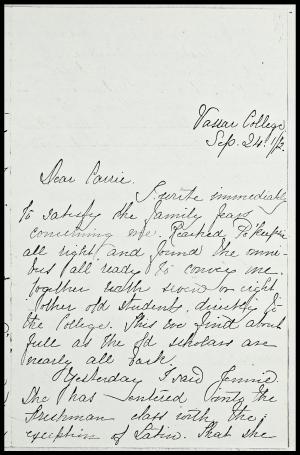 Vassar College
Sep. 24th
Dear Carrie.
I write immediately
to satisfy the family fears
concerning me. Reached Po'keepsie
all right, and found the omni-
bus all ready to convey me.
together with seven or eight
other old students, directly to
the College. This we find about
full as the old scholars are
nearly all back.
Yesterday I said Jennie
She has entered only the
Freshman class with the
exception of Latin. That she